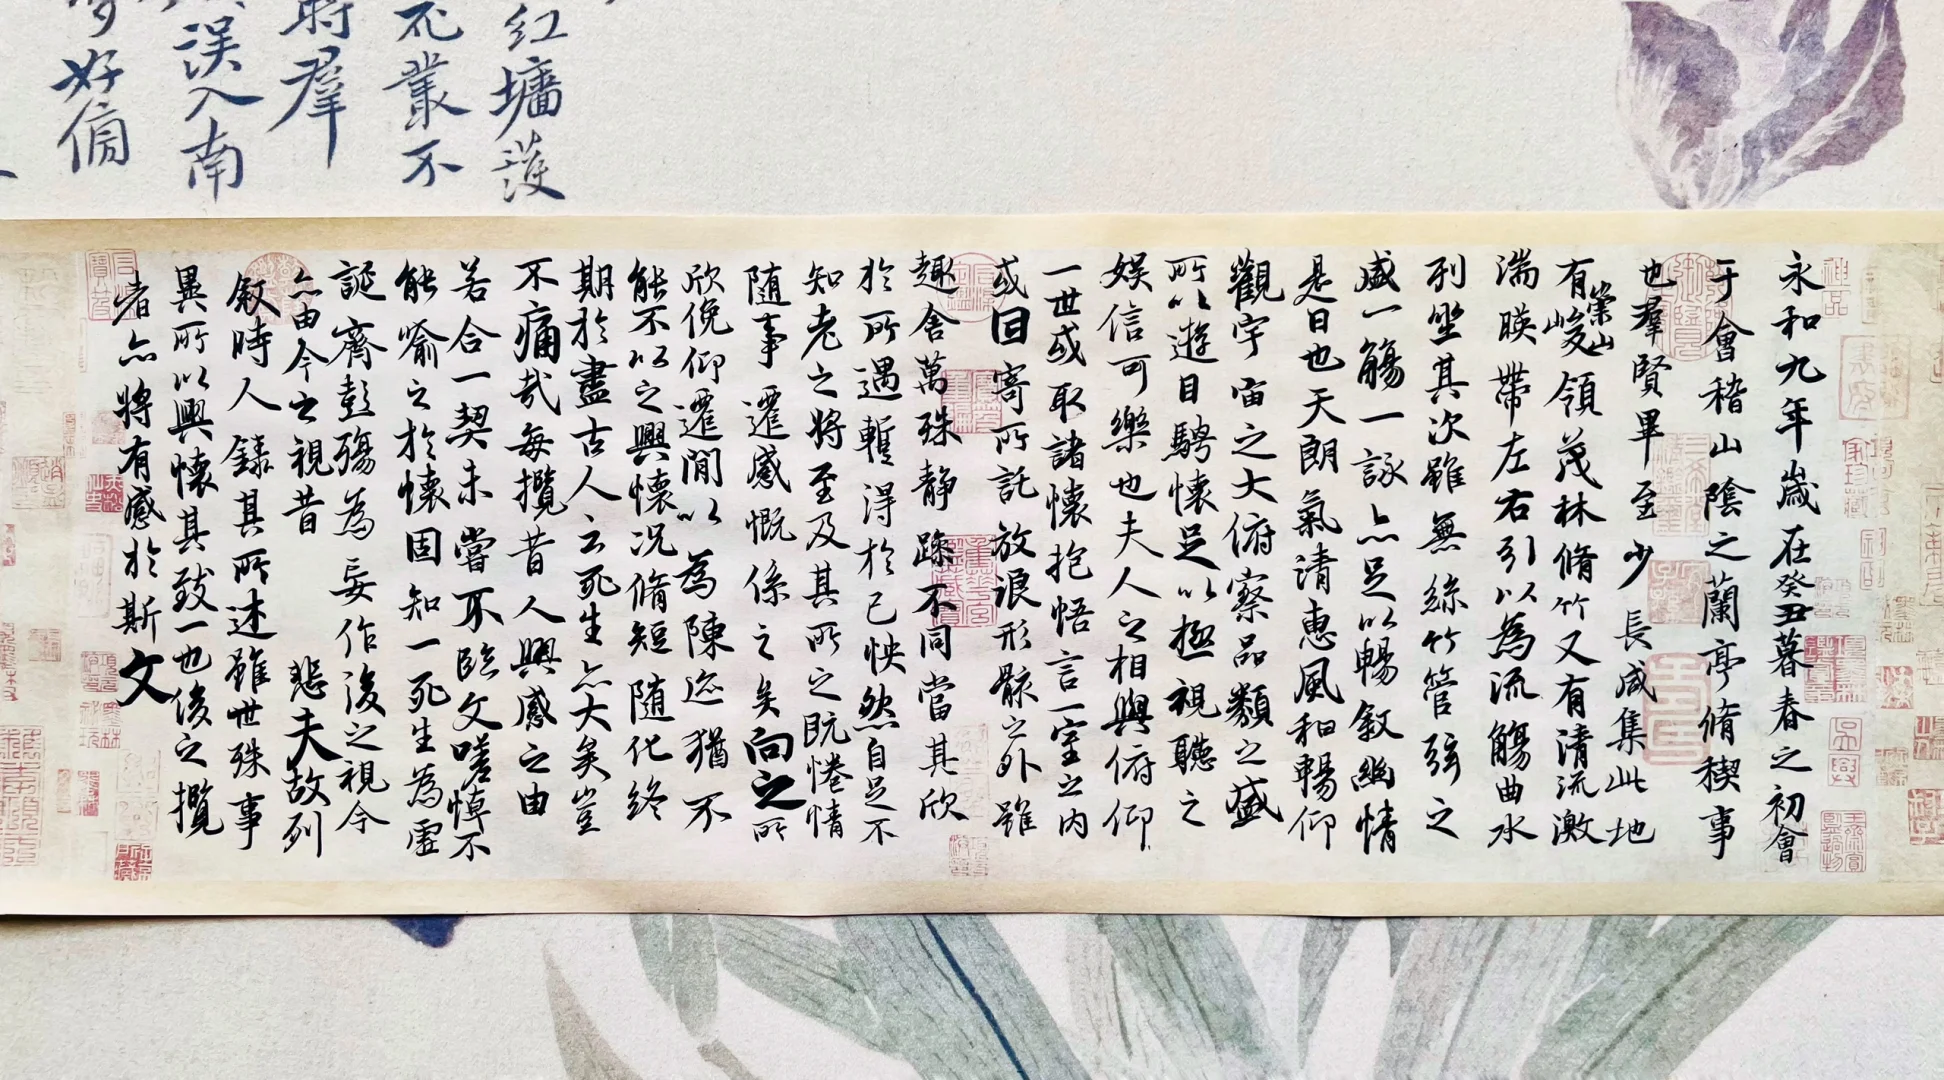 红墉護
花叢不
時羣
誤入南
好偏
永和九年歲在癸丑暮春之初會
于會稽山陰之蘭亭脩稧事
也羣賢畢至少長咸集此地
有崇山峻領茂林脩竹又有清流激
湍暎帶左右引以為流觴曲水
列坐其次雖無絲竹管弦之
盛一觴一詠亦足以暢敘幽情
是日也天朗氣清惠風和暢仰
觀宇宙之大俯察品類之盛
所以遊目騁懷足以極視聽之
娛信可樂也夫人之相與俯仰
一世或取諸懷抱悟言一室之內
或因寄所託放浪形骸之外雖
趣舍萬殊静躁不同當其欣
於所遇蹔得於己怏然自足不
知老之將至及其所之既惓情
隨事遷感慨係之矣向之所
欣俛仰之間以為陳迹猶不
能不以之興懷況脩短隨化終
期於盡古人云死生亦大矣豈
不痛哉每攬昔人興感之由
若合一契未嘗不臨文嗟悼不
能喻之於懷固知一死生為虛
誕齊彭殤為妄作後之視今
亦由今之視昔 悲夫故列
敘時人錄其所述雖世殊事
異所以興懷其致一也後之攬
者亦將有感於斯文